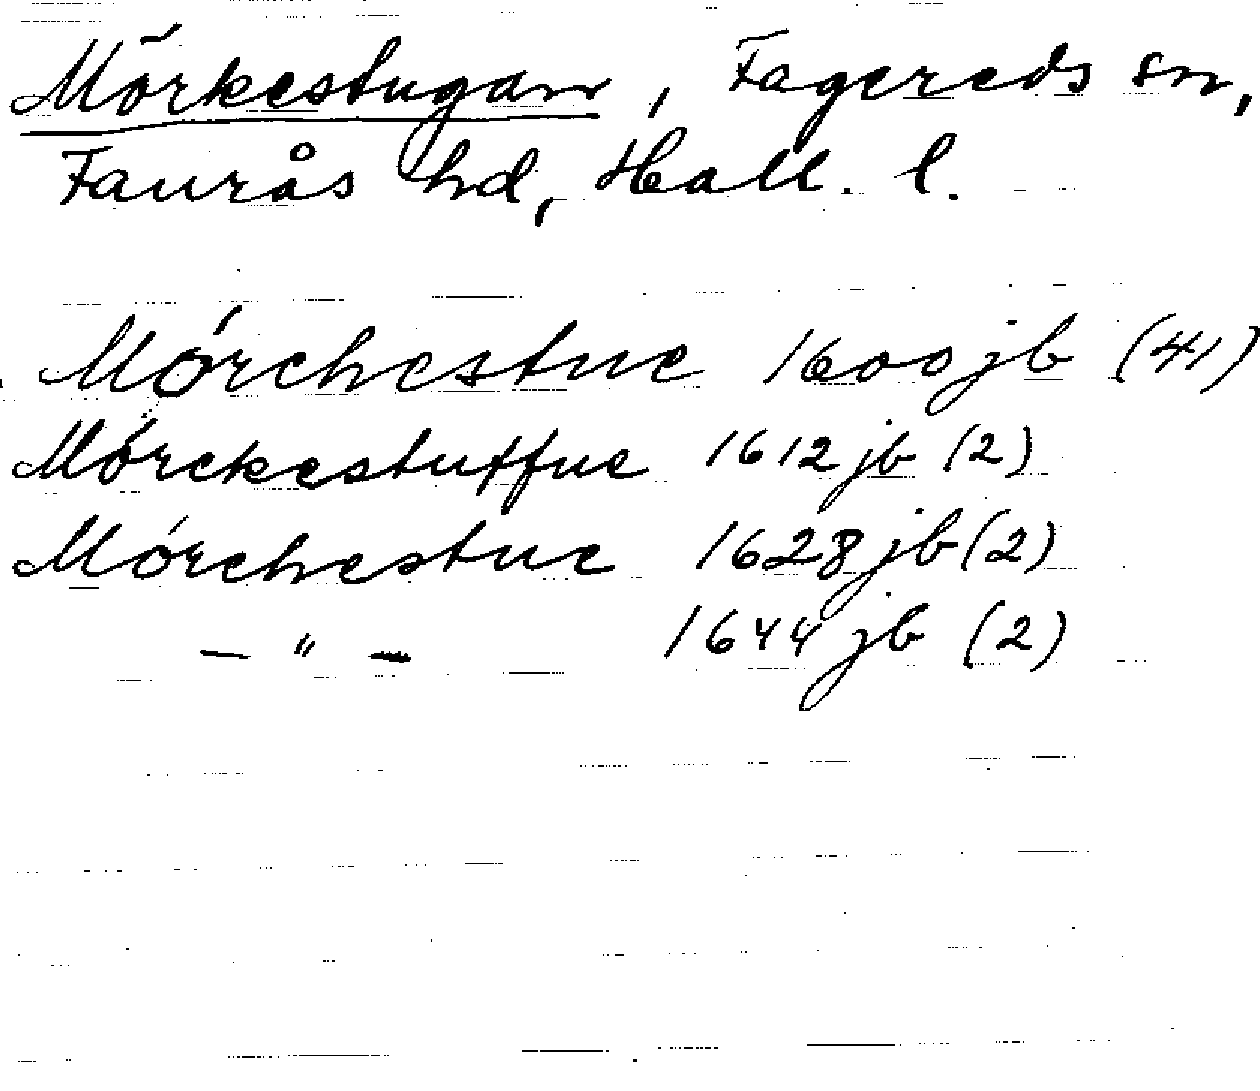 Mörkestugan, Fagereds sn,
Faurås hd, Hall. l.
Mórchestue 1600 jb (41)
Mórckestuffue 1612 jb (2)
Mórchestue 1628 jb (2)
— " — 1644 jb (2)